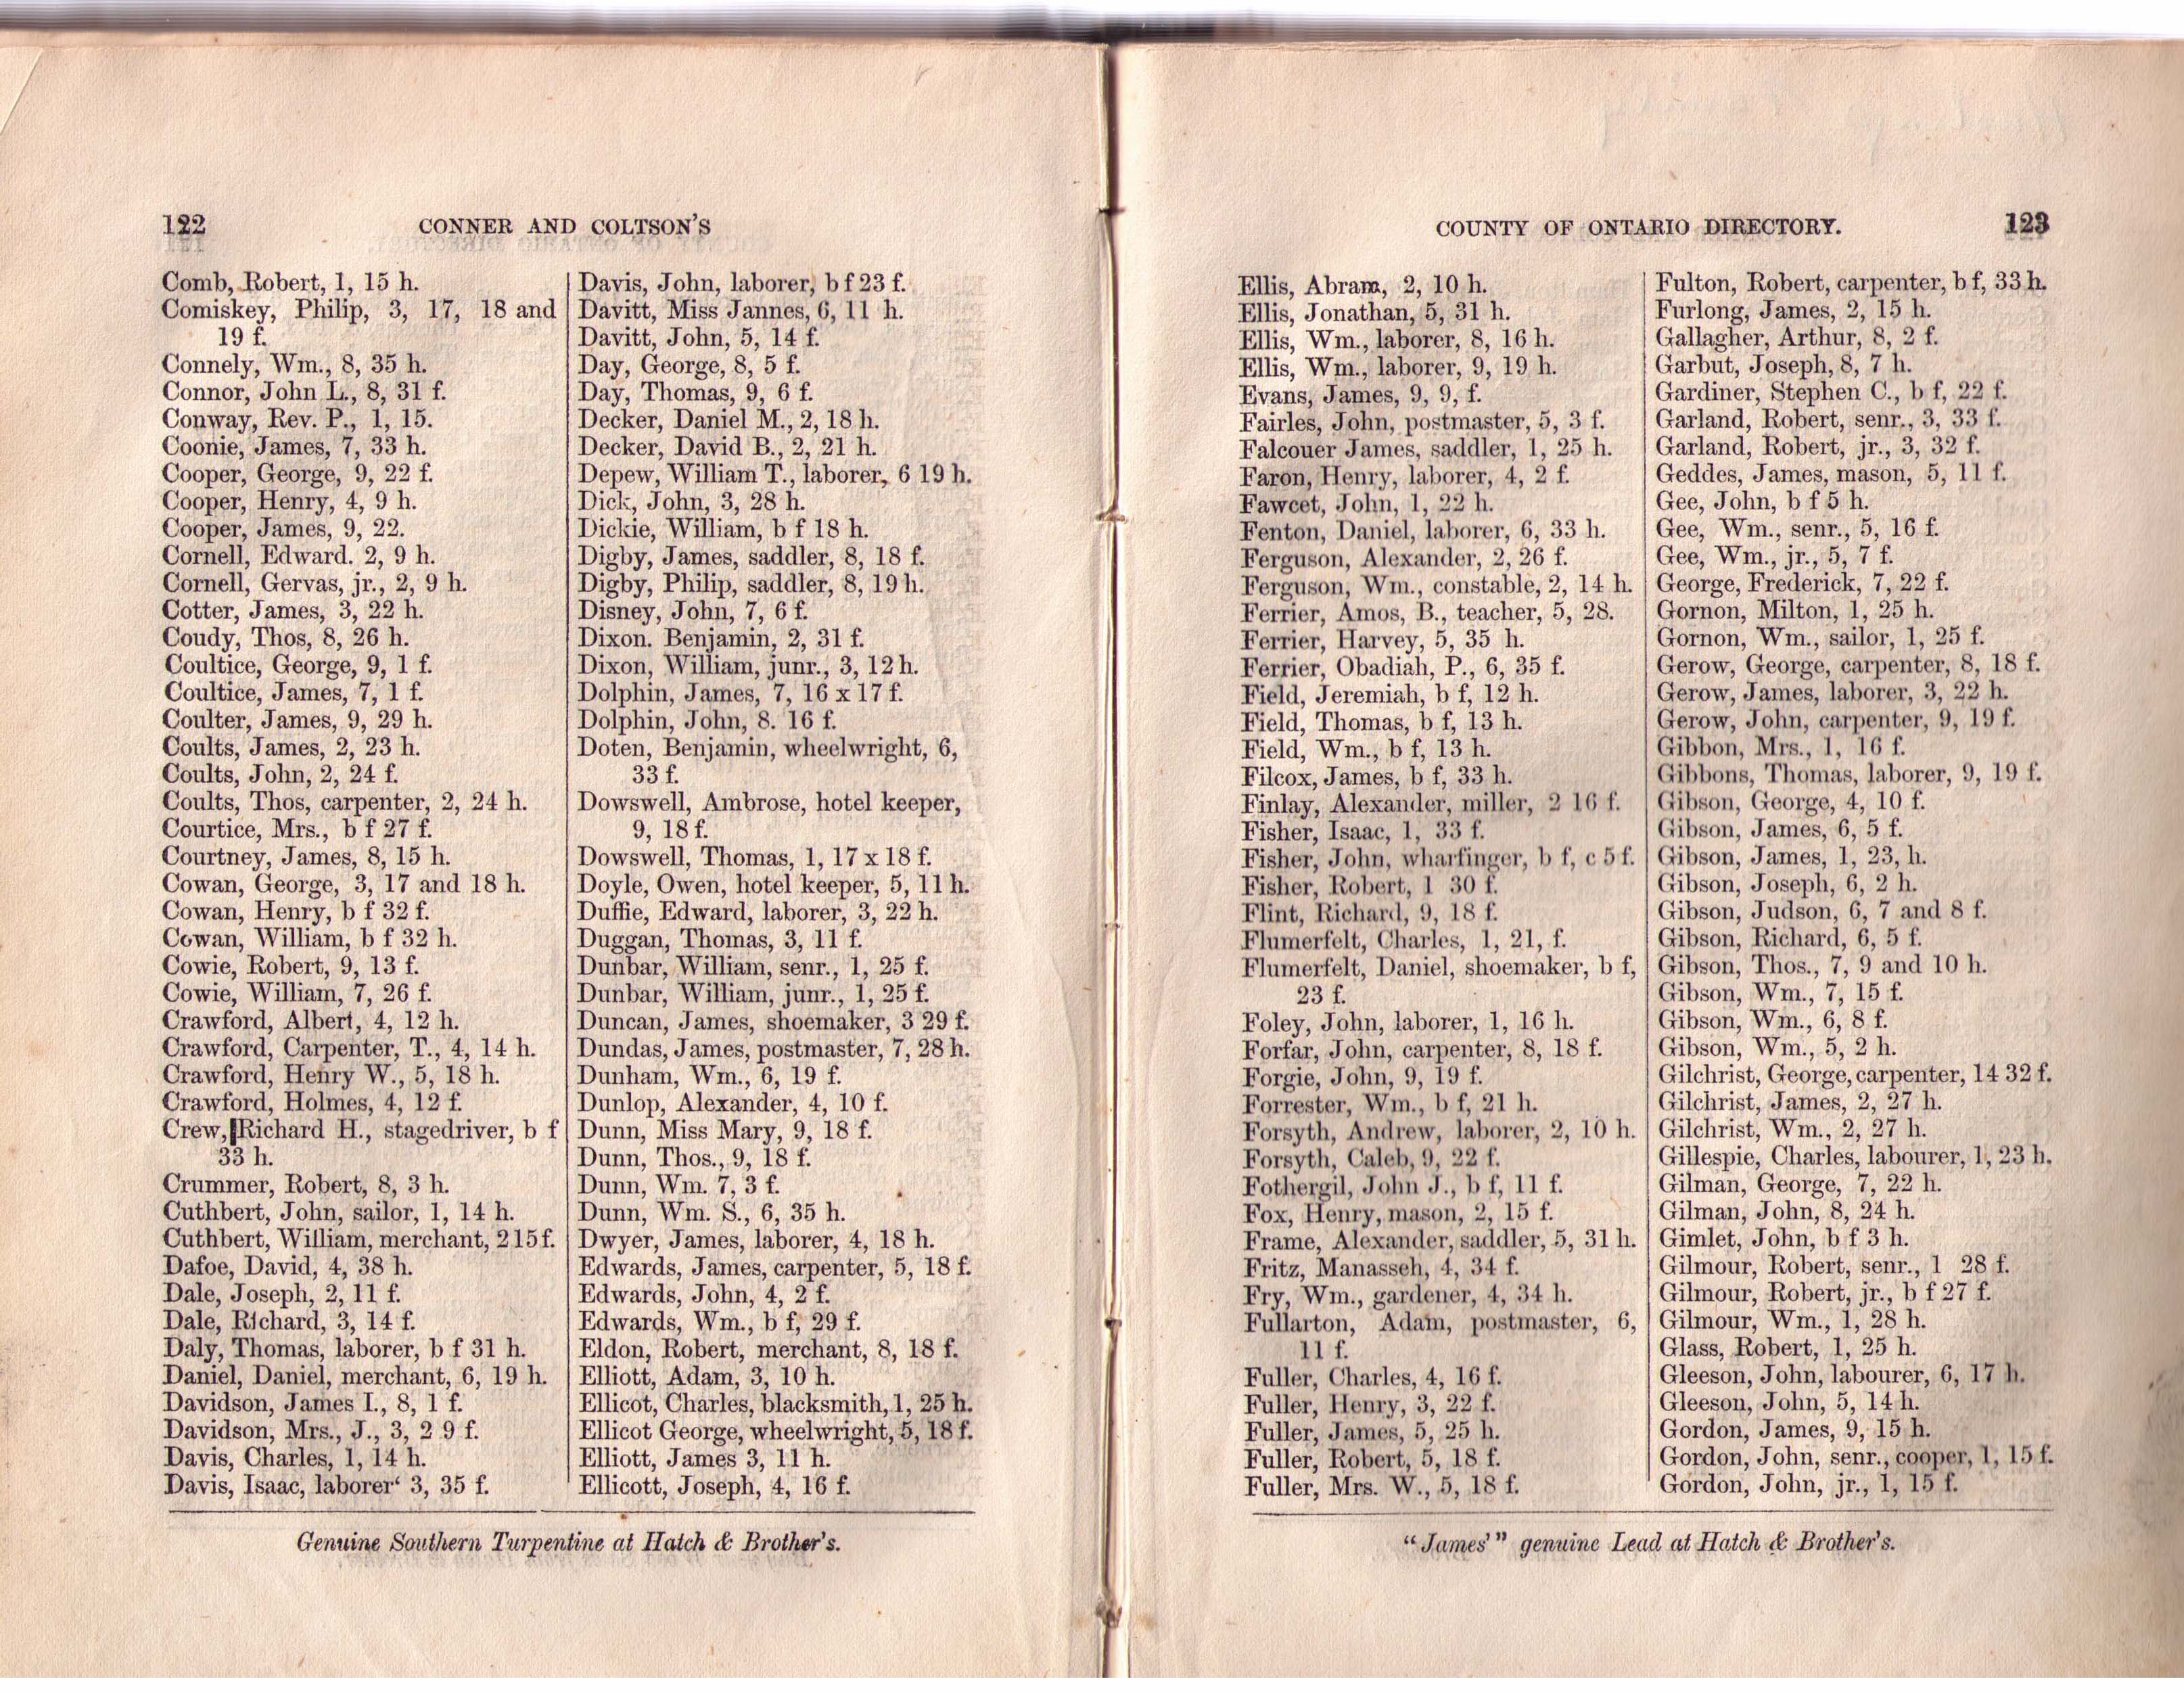 122
CONNER AND COLTSON'S
Comb, Robert, 1, 15 h.
Comiskey, Philip, 3, 17, 18 and
19 f.
Connely, Wm., 8, 35 h.
Connor, John L., 8, 31 f.
Conway, Rev. P., 1, 15.
Coonie, James, 7, 33 h.
Cooper, George, 9, 22 f.
Cooper, Henry, 4, 9 h.
Cooper, James, 9, 22.
Cornell, Edward. 2, 9 h.
Cornell, Gervas, jr., 2, 9 h.
Cotter, James, 3, 22 h.
Coudy, Thos, 8, 26 h.
Coultice, George, 9, 1 f.
Coultice, James, 7, 1 f.
Coulter, James, 9, 29 h.
Coults, James, 2, 23 h.
Coults, John, 2, 24 f.
Coults, Thos, carpenter, 2, 24 h.
Courtice, Mrs., b f 27 f.
Courtney, James, 8, 15 h.
Cowan, George, 3, 17 and 18 h.
Cowan, Henry, b f 32 f.
Cowan, William, b f 32 h.
Cowie, Robert, 9, 13 f.
Cowie, William, 7, 26 f.
Crawford, Albert, 4, 12 h.
Crawford, Carpenter, T., 4, 14 h.
Crawford, Henry W., 5, 18 h.
Crawford, Holmes, 4, 12 f.
Crew, Richard H., stagedriver, b f
33 h.
Crummer, Robert, 8, 3 h.
Cuthbert, John, sailor, 1, 14 h.
Cuthbert, William, merchant, 2 15 f.
Dafoe, David, 4, 38 h.
Dale, Joseph, 2, 11 f.
Dale, Richard, 3, 14 f.
Daly, Thomas, laborer, b f 31 h.
Daniel, Daniel, merchant, 6, 19 h.
Davidson, James I., 8, 1 f.
Davidson, Mrs., J., 3, 2 9 f.
Davis, Charles, 1, 14 h.
Davis, Isaac, laborer‘ 3, 35 f.
Davis, John, laborer, b f 23 f.
Davitt, Miss Jannes, 6, 11 h.
Davitt, John, 5, 14 f.
Day, George, 8, 5 f.
Day, Thomas, 9, 6 f.
Decker, Daniel M., 2, 18 h.
Decker, David B., 2, 21 h.
Depew, William T., laborer, 6 19 h.
Dick, John, 3, 28 h.
Dickie, William, b f 18 h.
Digby, James, saddler, 8, 18 f.
Digby, Philip, saddler, 8, 19 h.
Disney, John, 7, 6 f.
Dixon. Benjamin, 2, 31 f.
Dixon, William, junr., 3, 12 h.
Dolphin, James, 7, 16 x 17 f.
Dolphin, John, 8. 16 f.
Doten, Benjamin, wheelwright, 6,
33 f.
Dowswell, Ambrose, hotel keeper,
9, 18 f.
Dowswell, Thomas, 1, 17 x 18 f.
Doyle, Owen, hotel keeper, 5, 11 h.
Duffie, Edward, laborer, 3, 22 h.
Duggan, Thomas, 3, 11 f.
Dunbar, William, senr., 1, 25 f.
Dunbar, William, junr., 1, 25 f.
Duncan, James, shoemaker, 3 29 f.
Dundas, James, postmaster, 7, 28 h.
Dunham, Wm., 6, 19 f.
Dunlop, Alexander, 4, 10 f.
Dunn, Miss Mary, 9, 18 f.
Dunn, Thos., 9, 18 f.
Dunn, Wm. 7, 3 f.
Dunn, Wm. S., 6, 35 h.
Dwyer, James, laborer, 4, 18 h.
Edwards, James, carpenter, 5, 18 f.
Edwards, John, 4, 2 f.
Edwards, Wm., b f, 29 f.
Eldon, Robert, merchant, 8, 18 f.
Elliott, Adam, 3, 10 h.
Ellicot, Charles, blacksmith, 1, 25 h.
Ellicot George, wheelwright, 5, 18 f.
Elliott, James 3, 11 h.
Ellicott, Joseph, 4, 16 f.
Genuine Southern Turpentine at Hatch & Brother's.
COUNTY OF ONTARIO DIRECTORY.
123
Ellis, Abram, 2, 10 h.
Ellis, Jonathan, 5, 31 h.
Ellis, Wm., laborer, 8, 16 h.
Ellis, Wm., laborer, 9, 19 h.
Evans, James, 9, 9, f.
Fairles, John, postmaster, 5, 3 f.
Falcouer James, saddler, 1, 25 h.
Faron, Henry, laborer, 4, 2 f.
Fawcet, John, 1, 22 h.
Fenton, Daniel, laborer, 6, 33 h.
Ferguson, Alexander, 2, 26 f.
Ferguson, Wm., constable, 2, 14 h.
Ferrier, Amos, B., teacher, 5, 28.
Ferrier, Harvey, 5, 35 h.
Ferrier, Obadiah, P., 6, 35 f.
Field, Jeremiah, b f, 12 h.
Field, Thomas, b f, 13 h.
Field, Wm., b f, 13 h.
Filcox, James, b f, 33 h.
Finlay, Alexander, miller, 2 16 f.
Fisher, Isaac, 1, 33 f.
Fisher, John, wharfinger, b f, c 5 f.
Fisher, Robert, 1 30 f.
Flint, Richard, 9, 18 f.
Flumerfelt, Charles, 1, 21, f.
Flumerfelt, Daniel, shoemaker, b f,
23 f.
Foley, John, laborer, 1, 16 h.
Forfar, John, carpenter, 8, 18 f.
Forgie, John, 9, 19 f.
Forrester, Wm., b f, 21 h.
Forsyth, Andrew, laborer, 2, 10 h.
Forsyth, Caleb, 9, 22 f.
Fothergil, John J., b f, 11 f.
Fox, Henry, mason, 2, 15 f.
Frame, Alexander, saddler, 5, 31 h.
Fritz, Manasseh, 4, 34 f.
Fry, Wm., gardener, 4, 34 h.
Fullarton, Adam, postmaster, 6,
11 f.
Fuller, Charles, 4, 16 f.
Fuller, Henry, 3, 22 f.
Fuller, James, 5, 25 h.
Fuller, Robert, 5, 18 f.
Fuller, Mrs. W., 5, 18 f.
Fulton, Robert, carpenter, b f, 33 h.
Furlong, James, 2, 15 h.
Gallagher, Arthur, 8, 2 f.
Garbut, Joseph, 8, 7 h.
Gardiner, Stephen C., b f, 22 f.
Garland, Robert, senr., 3, 33 f.
Garland, Robert, jr., 3, 32 f.
Geddes, James, mason, 5, 11 f.
Gee, John, b f 5 h.
Gee, Wm., senr., 5, 16 f.
Gee, Wm., jr., 5, 7 f.
George, Frederick, 7, 22 f.
Gornon, Milton, 1, 25 h.
Gornon, Wm., sailor, 1, 25 f.
Gerow, George, carpenter, 8, 18 f.
Gerow, James, laborer, 3, 22 h.
Gerow, John, carpenter, 9, 19 f.
Gibbon, Mrs., 1, 16 f.
Gibbons, Thomas, laborer, 9, 19 f.
Gibson, George, 4, 10 f.
Gibson, James, 6, 5 f.
Gibson, James, 1, 23, h.
Gibson, Joseph, 6, 2 h.
Gibson, Judson, 6, 7 and 8 f.
Gibson, Richard, 6, 5 f.
Gibson, Thos., 7, 9 and 10 h.
Gibson, Wm., 7, 15 f.
Gibson, Wm., 6, 8 f.
Gibson, Wm., 5, 2 h.
Gilchrist, George, carpenter, 14 32 f.
Gilchrist, James, 2, 27 h.
Gilchrist, Wm., 2, 27 h.
Gillespie, Charles, labourer, 1, 23 h.
Gilman, George, 7, 22 h.
Gilman, John, 8, 24 h.
Gimlet, John, b f 3 h.
Gilmour, Robert, senr., 1 28 f.
Gilmour, Robert, jr., b f 27 f.
Gilmour, Wm., 1, 28 h.
Glass, Robert, 1, 25 h.
Gleeson, John, labourer, 6, 17 h.
Gleeson, John, 5, 14 h.
Gordon, James, 9, 15 h.
Gordon, John, senr., cooper, 1, 15 f.
Gordon, John, jr., 1, 15 f.
“James’” genuine Lead at Hatch & Brother's.